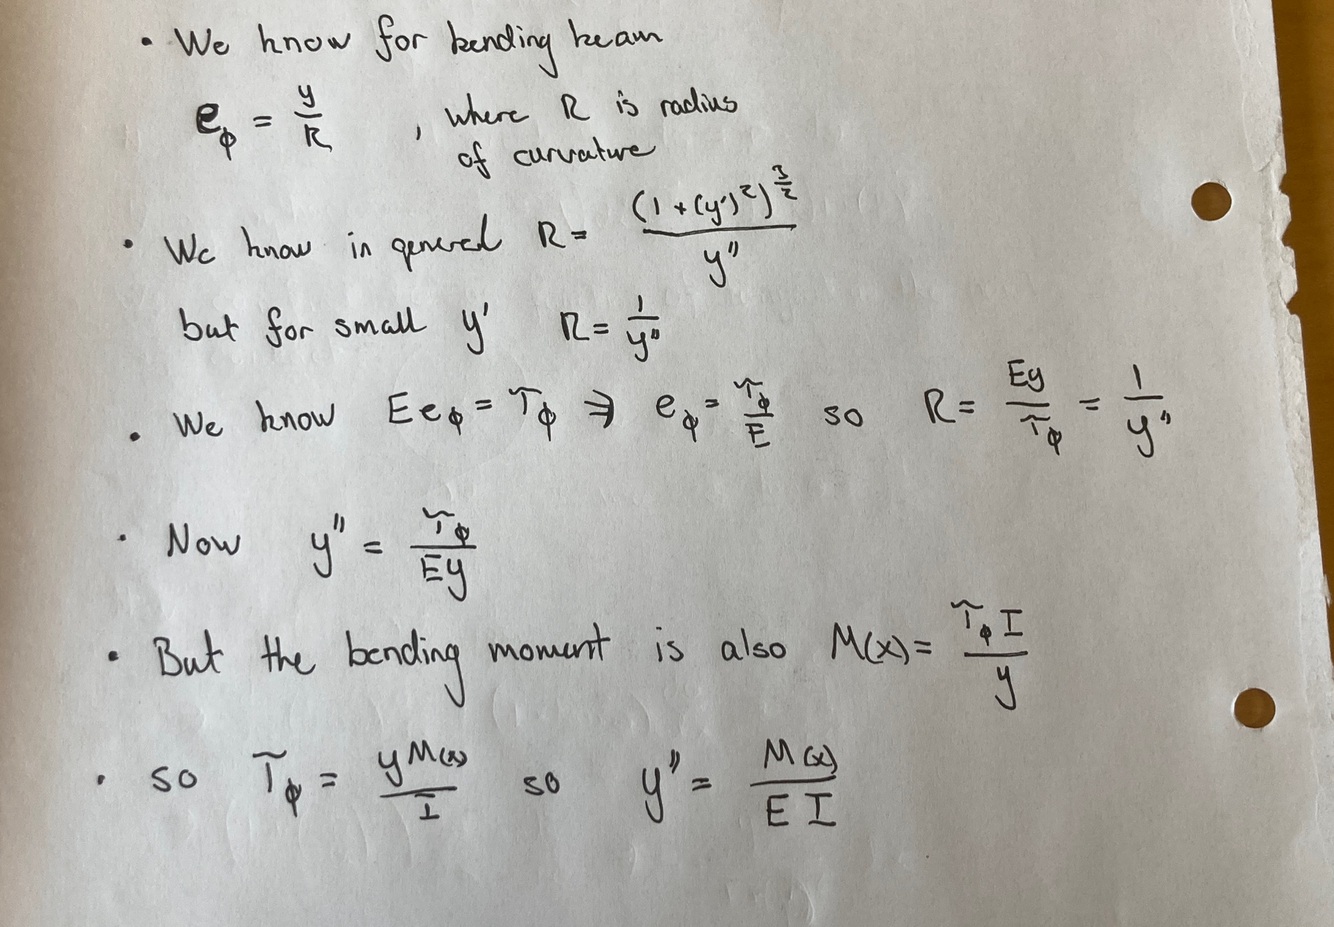 • We know for bending beam
e_φ = y/R , where R is radius
of curvature
• We know in general R = (1 + (y')²)^(3/2) / y''
but for small y' R = 1/y''
• We know E e_φ = T̃_φ ⇒ e_φ = T̃_φ/E so R = Ey/T̃_φ = 1/y''
• Now y'' = T̃_φ/Ey
• But the bending moment is also M(x) = T̃_φ I/y
• so T̃_φ = y M(x)/I so y'' = M(x)/EI